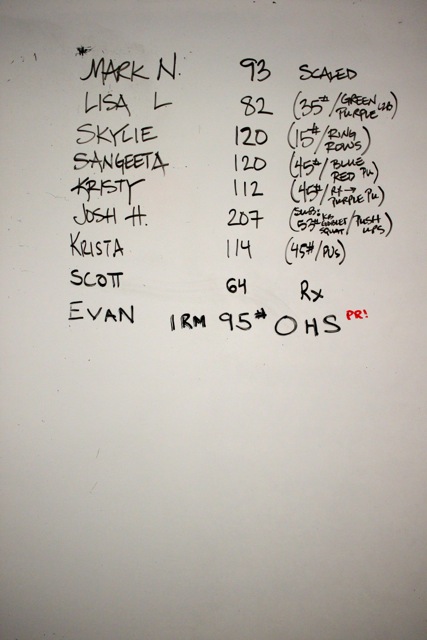 MARK N. 93 SCALED
LISA L 82 (35#/GREEN PURPLE)
SKYLIE 120 (15#/RING ROWS)
SANGEETA 120 (45#/BLUE RED PU)
KRISTY 112 (45#/RX→ PURPLE PU)
JOSH H. 207 (SUB: 53# KB GOBLET SQUAT/PUSH UPS)
KRISTA 114 (45#/PUs)
SCOTT 64 Rx
EVAN 1RM 95# OHS PR!